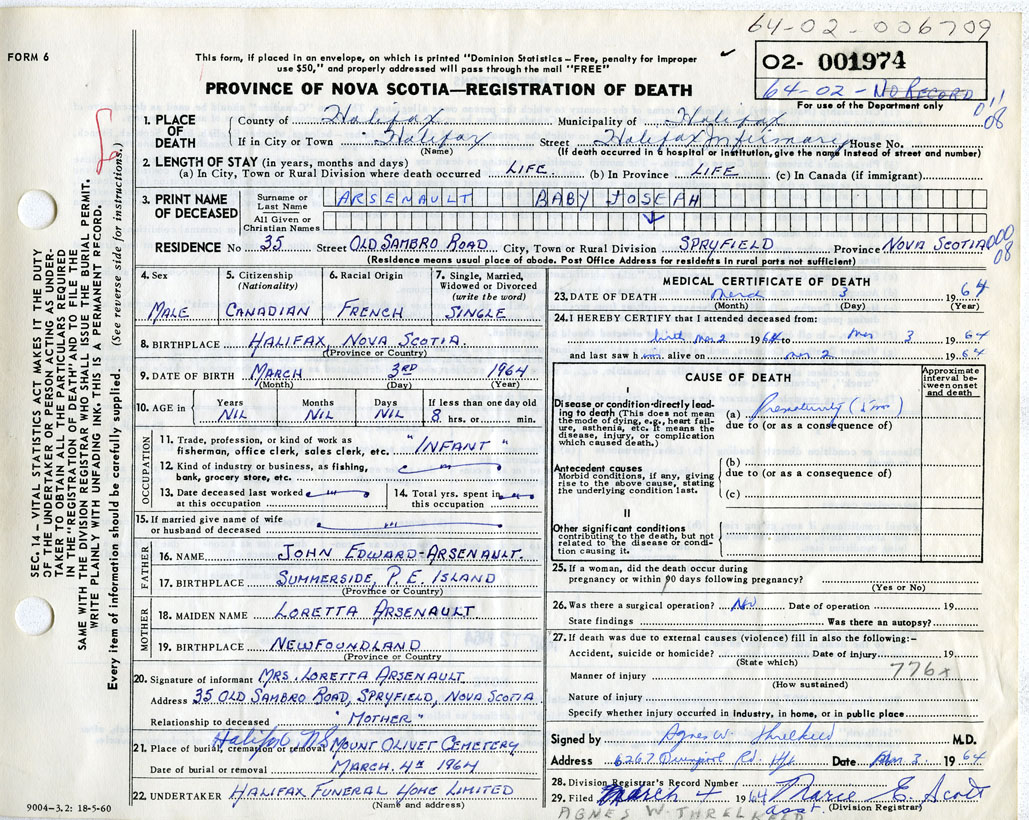 64-02-006709
FORM 6
This form, if placed in an envelope, on which is printed "Dominion Statistics—Free, penalty for improper
use $50," and properly addressed will pass through the mail "FREE"
PROVINCE OF NOVA SCOTIA—REGISTRATION OF DEATH
02- 001974
64-02-NO RECORD
For use of the Department only
011
08
1. PLACE OF DEATH
County of Halifax Municipality of Halifax
If in City or Town Halifax Street Halifax Infirmary House No.
(Name) (If death occurred in a hospital or institution, give the name instead of street and number)
2. LENGTH OF STAY (in years, months and days)
(a) In City, Town or Rural Division where death occurred LIFE. (b) In Province LIFE. (c) In Canada (if immigrant)
3. PRINT NAME OF DECEASED
Surname or Last Name ARSENAULT BABY JOSEPH
All Given or Christian Names
RESIDENCE No 35 Street OLD SAMBRO ROAD City, Town or Rural Division SPRYFIELD Province NOVA SCOTIA
000
08
(Residence means usual place of abode. Post Office Address for residents in rural parts not sufficient)
4. Sex
MALE
5. Citizenship
(Nationality)
CANADIAN
6. Racial Origin
FRENCH
7. Single, Married,
Widowed or Divorced
(write the word)
SINGLE
8. BIRTHPLACE HALIFAX, NOVA SCOTIA.
(Province or Country)
9. DATE OF BIRTH MARCH 3RD 1964
(Month) (Day) (Year)
10. AGE in
Years Months Days If less than one day old
NIL NIL NIL 8 hrs. or min.
OCCUPATION
11. Trade, profession, or kind of work as
fisherman, office clerk, sales clerk, etc. "INFANT"
12. Kind of industry or business, as fishing,
bank, grocery store, etc.
13. Date deceased last worked
at this occupation
14. Total yrs. spent in
this occupation
15. If married give name of wife
or husband of deceased
FATHER
16. NAME JOHN EDWARD ARSENAULT.
17. BIRTHPLACE SUMMERSIDE, P.E. ISLAND
(Province or Country)
MOTHER
18. MAIDEN NAME LORETTA ARSENAULT
19. BIRTHPLACE NEWFOUNDLAND
(Province or Country)
20. Signature of informant MRS. LORETTA ARSENAULT
Address 35 OLD SAMBRO ROAD, SPRYFIELD, NOVA SCOTIA
Relationship to deceased "MOTHER"
Halifax N.S.
21. Place of burial, cremation or removal MOUNT OLIVET CEMETERY
Date of burial or removal MARCH. 4TH 1964
22. UNDERTAKER HALIFAX FUNERAL HOME LIMITED
(Name and address)
9004-3.2: 18-5-60
MEDICAL CERTIFICATE OF DEATH
23. DATE OF DEATH March 3 1964
(Month) (Day) (Year)
24. I HEREBY CERTIFY that I attended deceased from:
birth Mar 2 1964 to Mar 3 1964
and last saw him alive on Mar 2 1964
CAUSE OF DEATH
Approximate interval between onset and death
I
Disease or condition directly leading to death (This does not mean the mode of dying, e.g., heart failure, asthenia, etc. It means the disease, injury, or complication which caused death.)
(a) Prematurity
due to (or as a consequence of)
Antecedent causes
Morbid conditions, if any, giving rise to the above cause, stating the underlying condition last.
(b)
due to (or as a consequence of)
(c)
II
Other significant conditions
contributing to the death, but not related to the disease or condition causing it.
25. If a woman, did the death occur during
pregnancy or within 90 days following pregnancy?
(Yes or No)
26. Was there a surgical operation? No Date of operation 19
State findings Was there an autopsy?
27. If death was due to external causes (violence) fill in also the following:—
Accident, suicide or homicide? Date of injury 19
(State which)
Manner of injury 776x
(How sustained)
Nature of injury
Specify whether injury occurred in industry, in home, or in public place
Signed by Agnes W. Threlkeld M.D.
Address 6267 Rd. Hfx Date Mar 3 1964
28. Division Registrar's Record Number
29. Filed March 4 1964 Marie E. Scott
asst. (Division Registrar)
AGNES W. THRELKELD
SEC. 14 — VITAL STATISTICS ACT MAKES IT THE DUTY
OF THE UNDERTAKER OR PERSON ACTING AS UNDER-
TAKER TO OBTAIN ALL THE PARTICULARS REQUIRED
IN THE "REGISTRATION OF DEATH" AND TO FILE THE
SAME WITH THE DIVISION REGISTRAR WHO SHALL ISSUE THE BURIAL PERMIT.
WRITE PLAINLY WITH UNFADING INK. THIS IS A PERMANENT RECORD.
Every item of information should be carefully supplied. (See reverse side for instructions.)